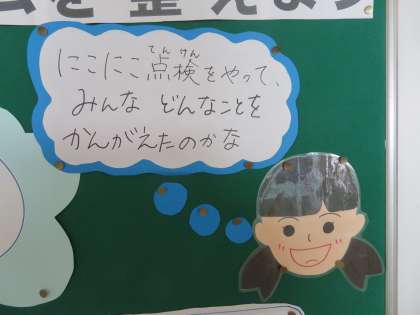 を整えよう
にこにこ点検をやって、
みんな どんなことを
かんがえたのかな